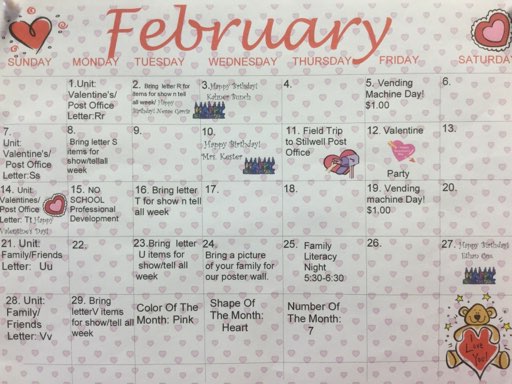 February
SUNDAY MONDAY TUESDAY WEDNESDAY THURSDAY FRIDAY SATURDAY
1.Unit:
Valentine's/
Post Office
Letter:Rr
2. Bring letter R for
items for show n tell
all week/ Happy
Birthday
3.Happy Birthday!
Bunch
4.
5. Vending
Machine Day!
$1.00
6.
7.
Unit:
Valentine's/
Post Office
Letter:Ss
8.
Bring letter S
items for
show/tellall
week
9.
10.
Happy Birthday!
Mrs. Kester
11. Field Trip
to Stilwell Post
Office
12. Valentine
Party
13.
14. Unit:
Valentines/
Post Office
Letter: Tt Happy
Valentine's Day!
15. NO
SCHOOL
Professional
Development
16. Bring letter
T for show n tell
all week
17.
18.
19. Vending
Machine day!
$1.00
20.
21. Unit:
Family/Friends
Letter: Uu
22.
23.Bring letter
U items for
show/tell all
week
24.
Bring a picture
of your family for
our poster wall.
25. Family
Literacy
Night
5:30-6:30
26.
27. Happy Birthday!
Ethan
28. Unit:
Family/
Friends
Letter: Vv
29. Bring
letterV items
for show/tell all
week
Color Of The
Month: Pink
Shape Of
The Month:
Heart
Number Of
The Month:
7
I Love
You!